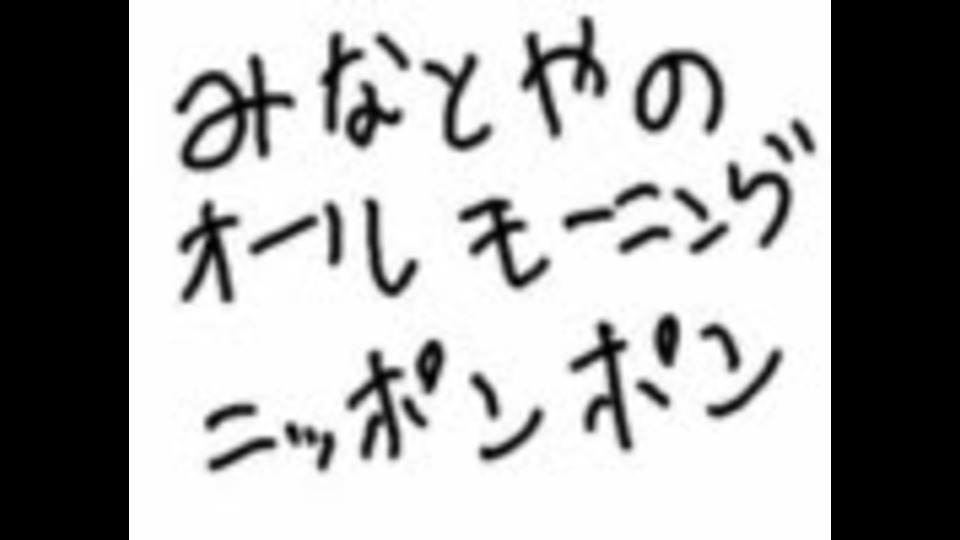 みなとやの
オールモーニング
ニッポンポン